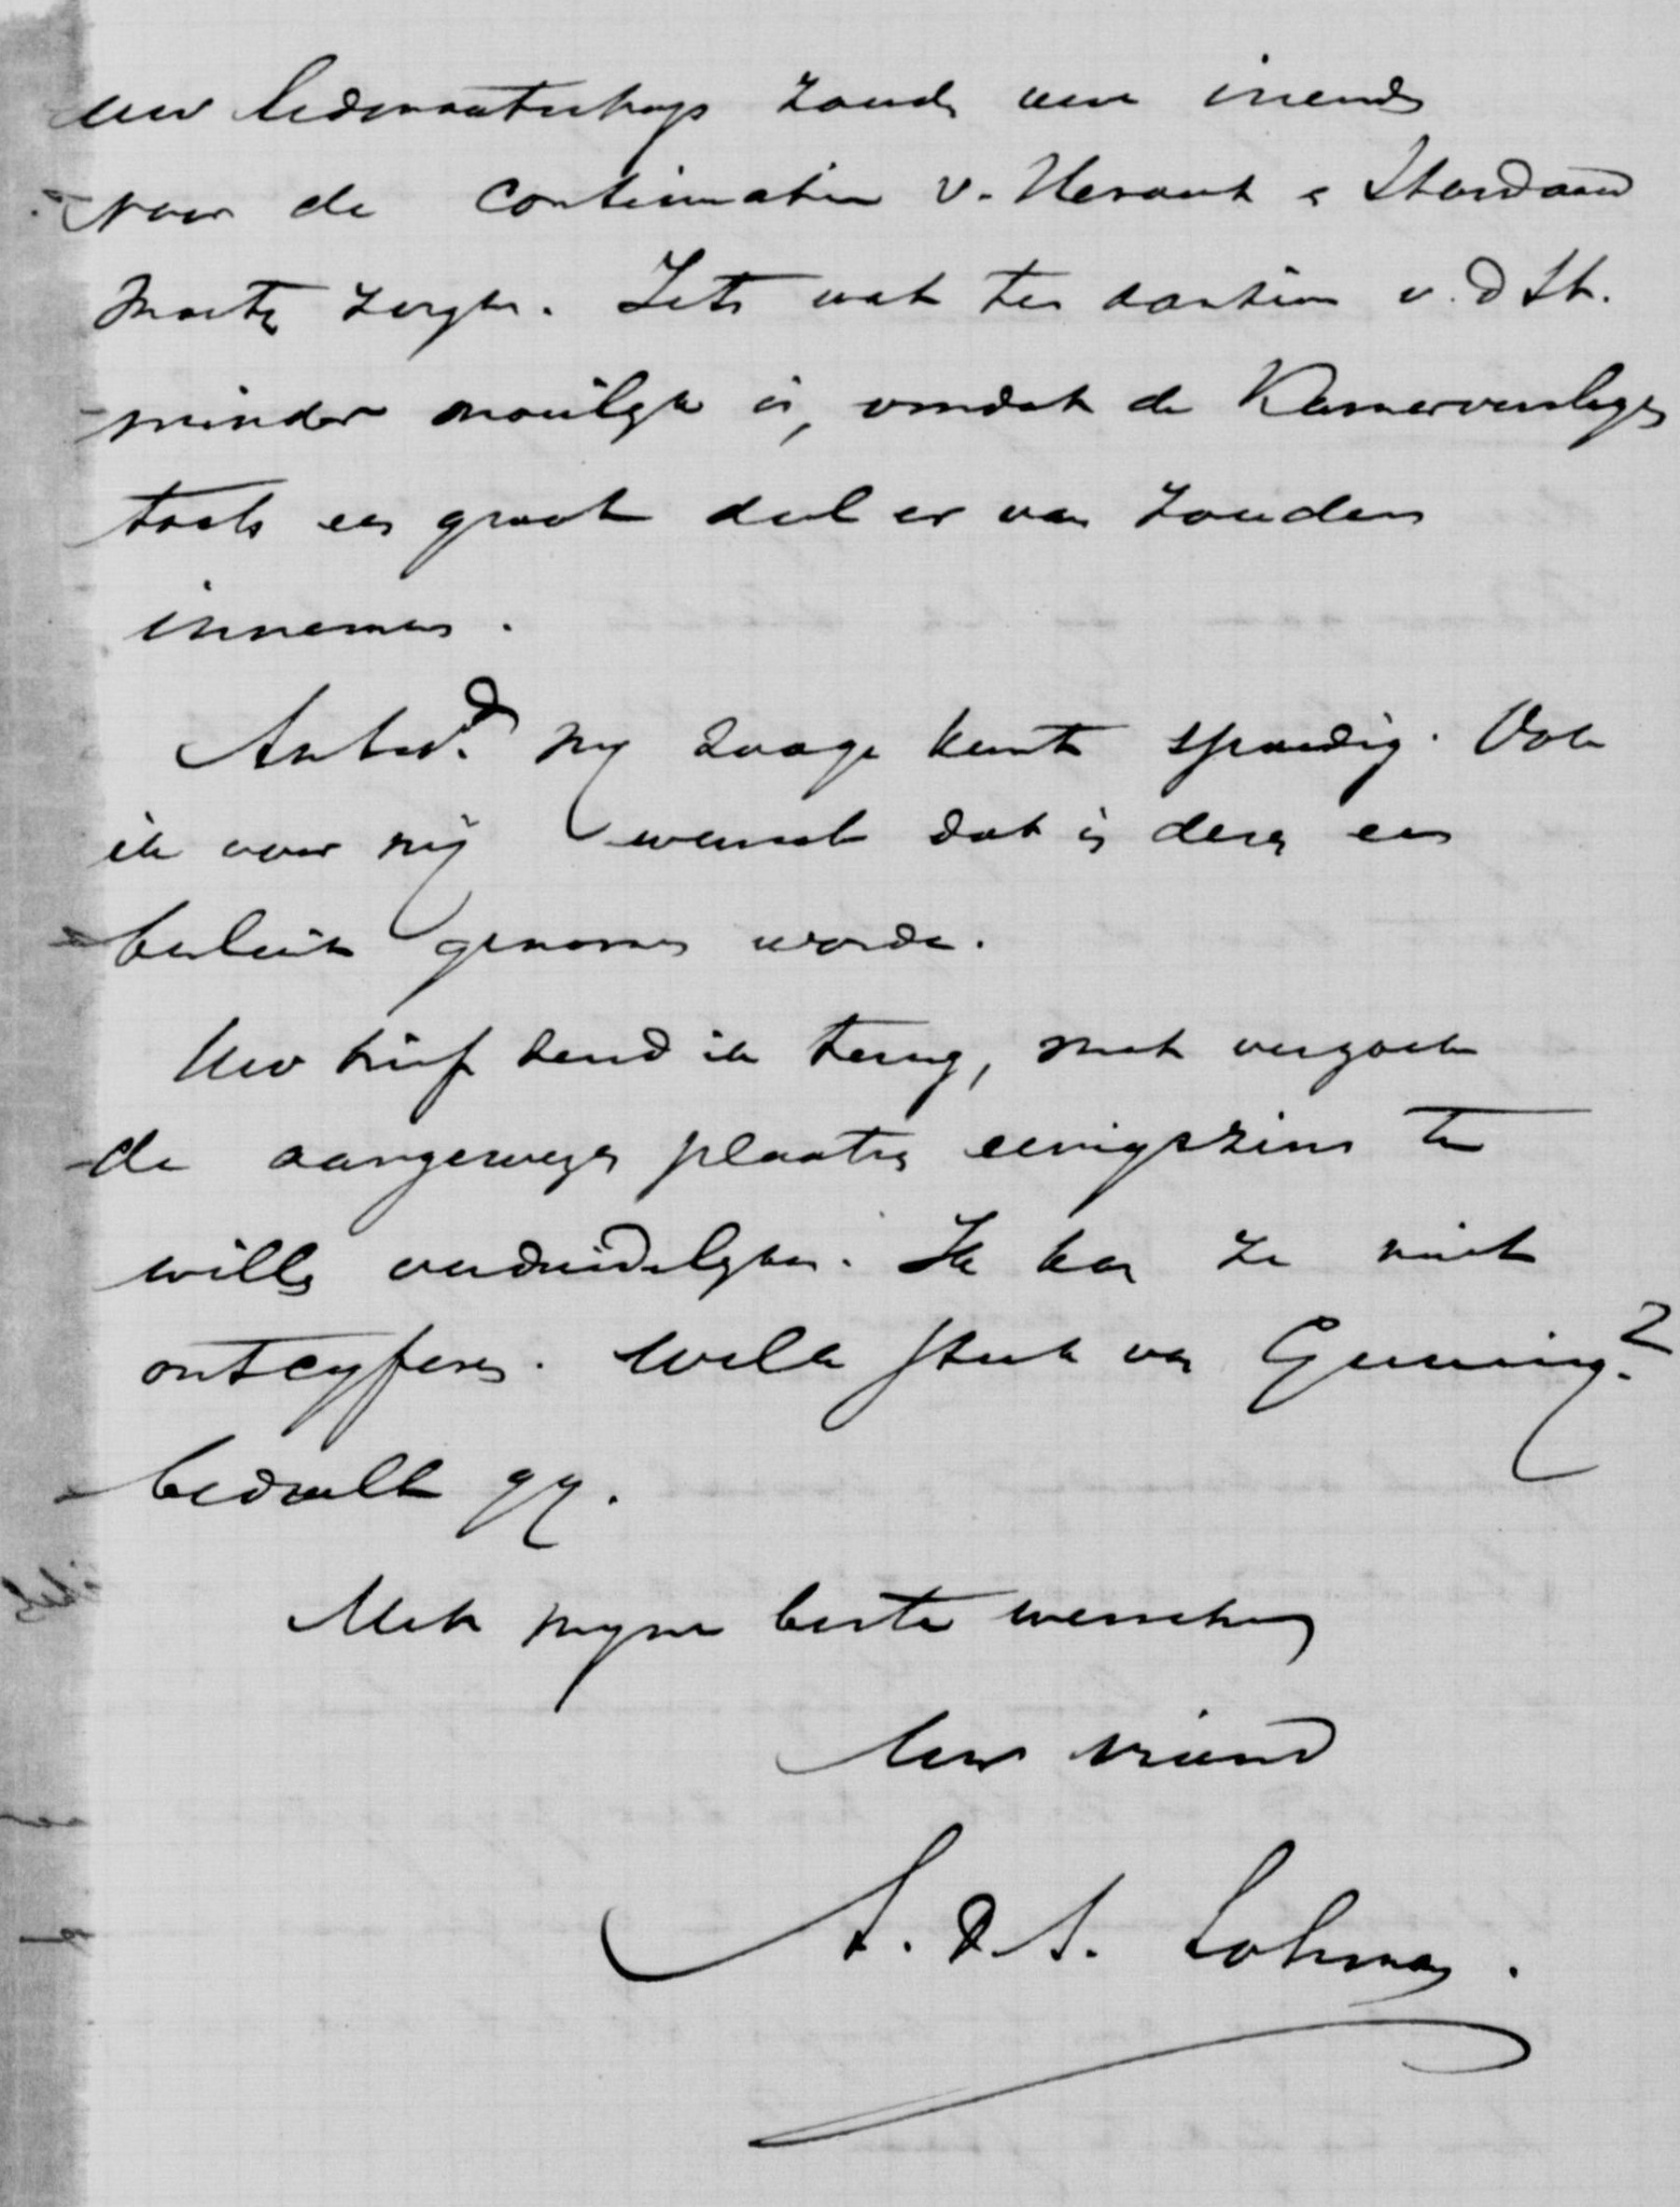 uw lidmaatschap zoud uw vriend
voor de continuatie v. Heraut & Standaard
moeten zorgen. Iets wat ten aanzien v. d St.
minder moeilyk is, omdat de Kamerverslagen
toch een groot deel er van zouden
innemen.
Antwd. my zoo ge kunt spoedig. Ook
ik voor mij wensch dat in dezen een
besluit genomen worde.
Uw brief zend ik terug, met verzoek
de aangewezen plaatsen eenigszins te
willen verduidelyken. Ik kan ze niet
ontcyferen. Welk stuk van Gunning?
bedoelt gy.
Met myne beste wenschen
Uw vriend
A. F. d. S. Lohman.